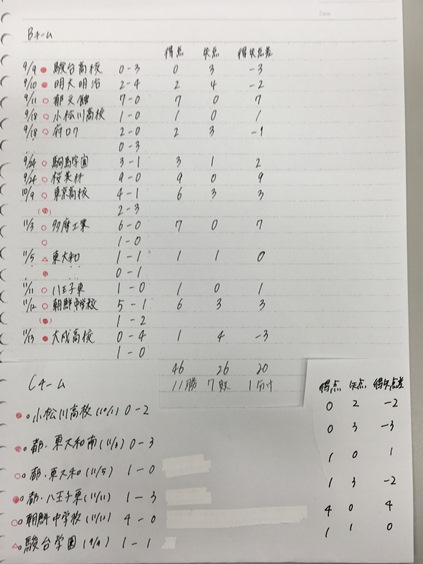 Bチーム
得点 失点 得失点差
9/9 ● 駿台高校 0-3 0 3 -3
9/10 ● 明大明治 2-4 2 4 -2
9/11 ○ 郁文館 7-0 7 0 7
9/18 ○ 小松川高校 1-0 1 0 1
9/18 ○ 府ロク 2-0 2 3 -1
0-3
9/24 ○ 駒場学園 3-1 3 1 2
9/24 ○ 桜美林 9-0 9 0 9
10/9 ○ 東京高校 4-1 6 3 3
(●) 2-3
11/3 ○ 多摩工業 6-0 7 0 7
○ 1-0
11/5 △ 東大和 1-1 1 1 0
● 0-1
11/11 ○ 八王子東 1-0 1 0 1
11/12 ○ 朝鮮中学校 5-1 6 3 3
(●) 1-2
11/13 ● 大成高校 0-4 1 4 -3
○ 1-0
46 26 20
11勝 7敗 1分け
Cチーム
得点 失点 得失点差
● 小松川高校 0-2 0 2 -2
● 都・東大和南 (11/3) 0-3 0 3 -3
○ 都・東大和 (11/5) 1-0 1 0 1
● 都・八王子東 (11/11) 1-3 1 3 -2
○ 朝鮮中学校 (11/12) 4-0 4 0 4
△ 駿台学園 (9/9) 1-1 1 1 0